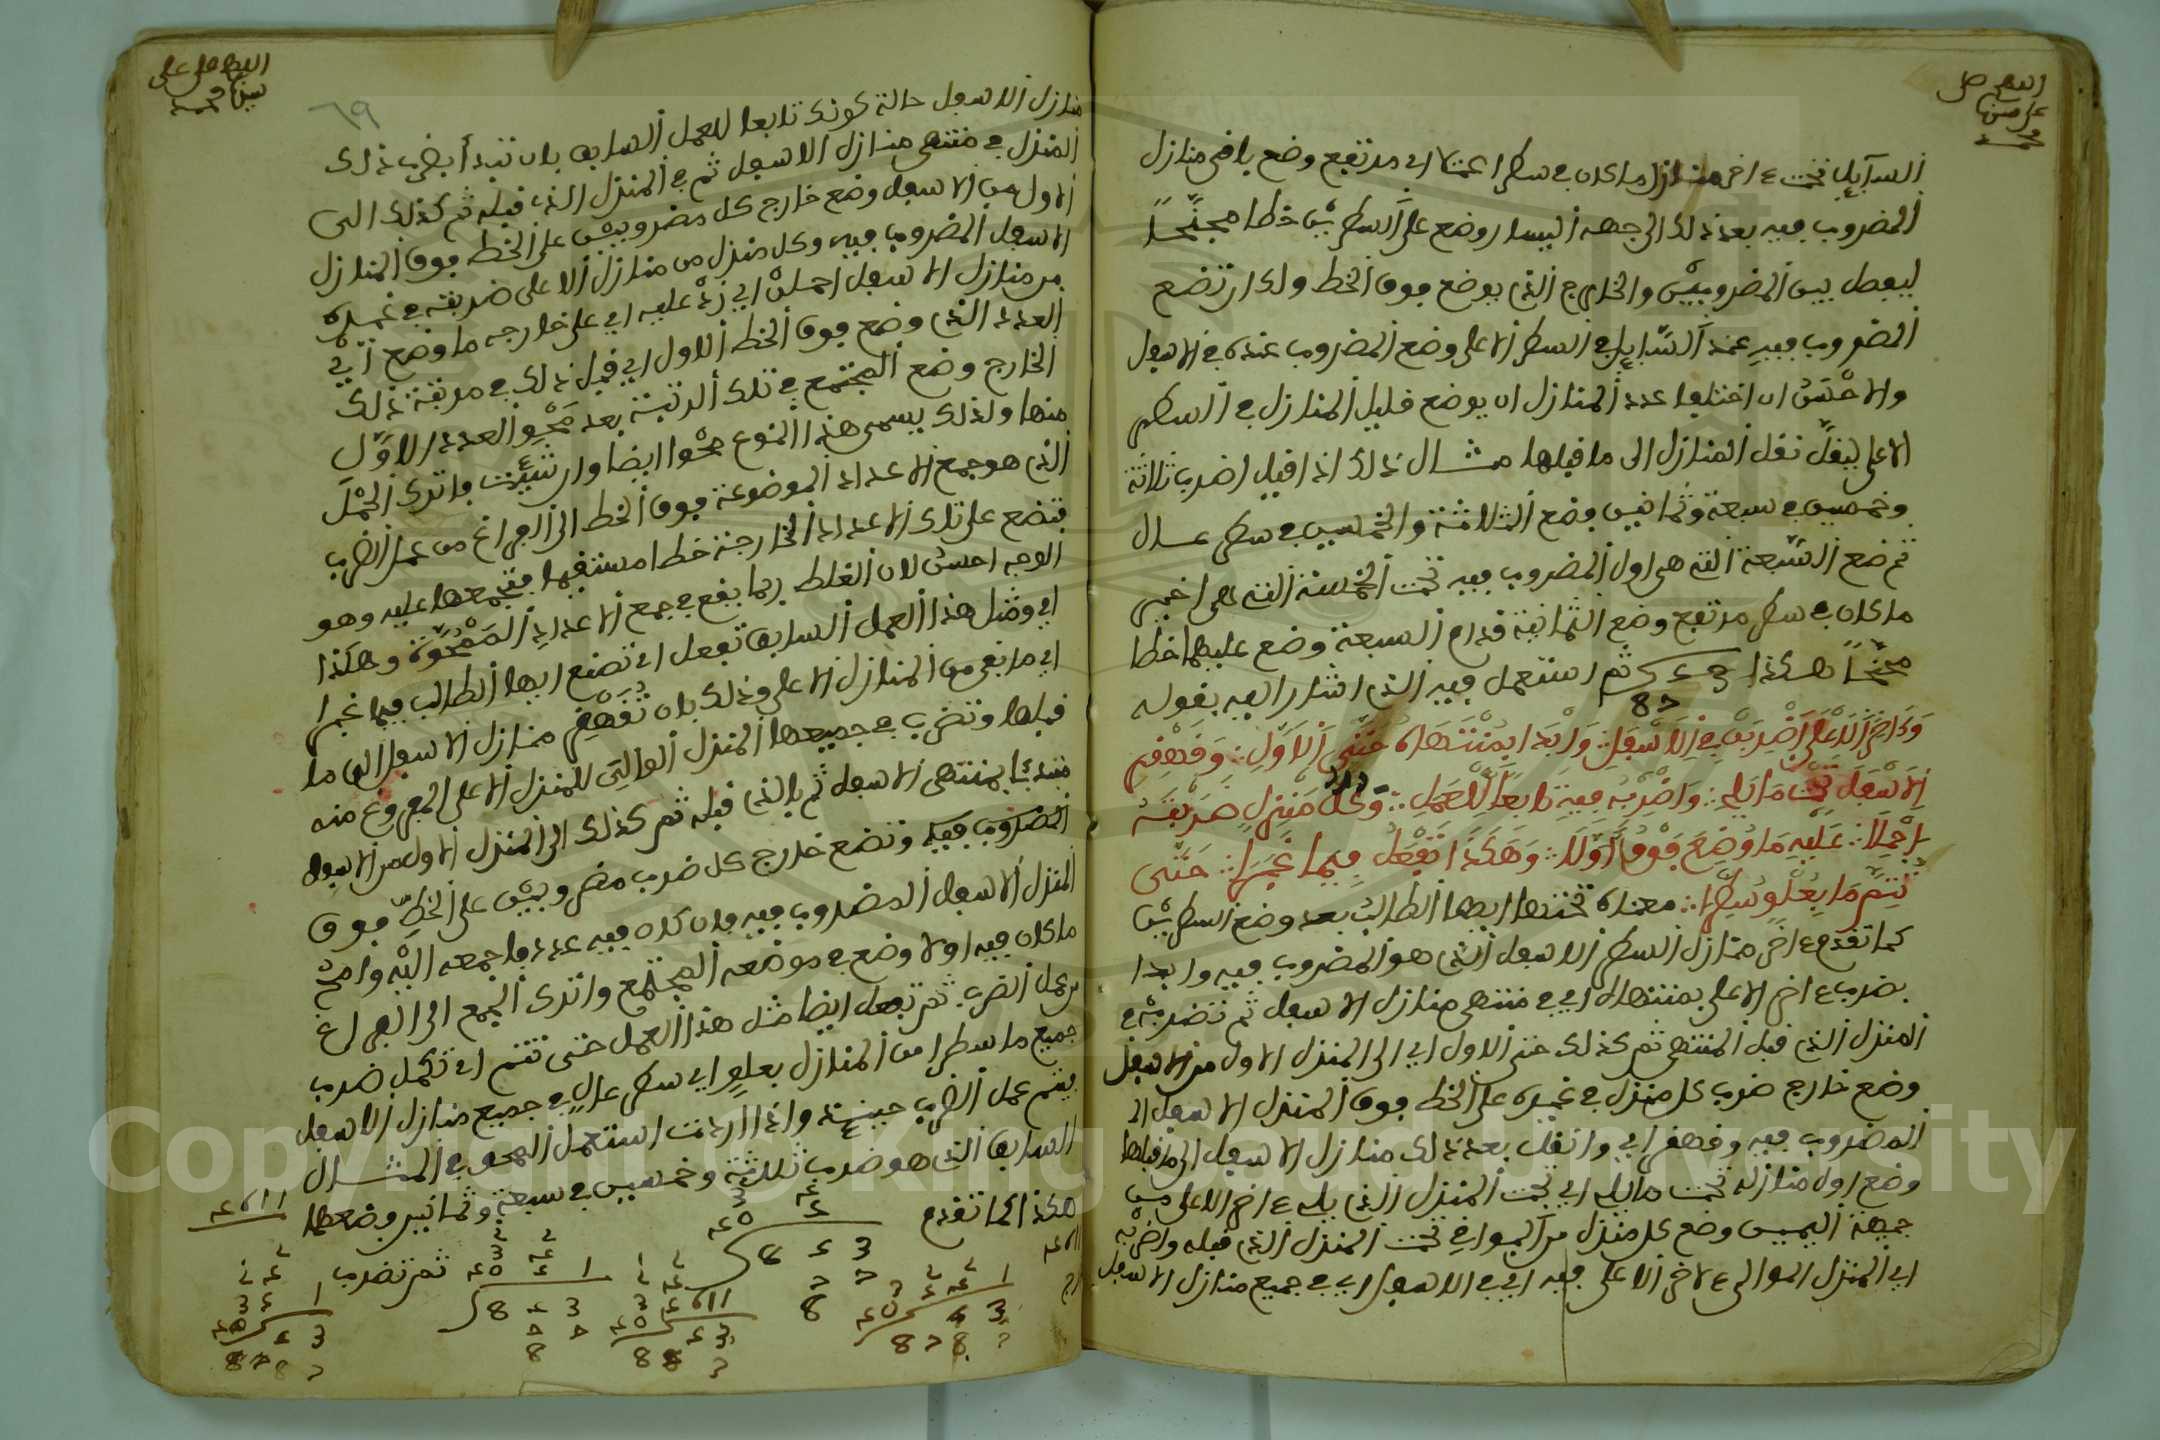 السآبل تحت ءاخر منازل ما كان في سطر اعتلا اي مرتفع وضع باقي منازل
المضروب فيه بعد ذلك الى جهه اليسار وضع على السطرين خطا مجنحا
ليفصل بين المضروبين والخارج الذي يوضع فوق الخط ولك ان تضع
المضروب فيه عند السابل في السطر الاعلى وضع المضروب عنده في الاسفل
والاحسن ان اختلفا عدد المنازل ان يوضع قليل المنازل في السطر
الاعلى ليقل نقل المنازل الى ما قبلها مثال ذلك اذا قيل اضرب ثلاثة
وخمسين في سبعة وثمانين فضع الثلاثة والخمسين في سطر عال
ثم ضع السبعة التي هي اول المضروب فيه تحت الخمسة التي هي اخير
ما كان في سطر مرتفع وضع الثمانية قدام السبعة وضع عليهما خطا
مجنحا هكذا ثم استعمل فيه الذي اشار اليه بقوله
وءاخر الاعلى اضربن في الاسفل وابدا بمنتهاه حتى الاول وقهقر
الاسفل تحت ما يلي واضربه فيه تابعا للعمل وكل منزل ضربته
احملا عليه ما وضع فوق اولا وهكذا تفعل فيما غبرا حتى
تتم ما بعلو سطرا معناه تحتها ايها الطالب بعد وضع السطرين
كما تقدم ءاخر منازل السطر الاسفل الذي هو المضروب فيه وابدا
بضرب ءاخر الاعلى بمنتهاه اي في منتهى منازل الاسفل ثم تضربه في
المنزل الذي قبل المنتهى ثم كذلك حتى الاول اي الى المنزل الاول من الاسفل
وضع خارج ضرب كل منزل في غيره على الخط فوق المنزل الاسفل
المضروب فيه وقهقر اي وانقل بعد ذلك منازل الاسفل الى ما قبلها
وضع اول منازله تحت ما يلي اي تحت المنزل الذي يلي ءاخر الاعلى من
جهة اليمين وضع كل منزل من البواقي تحت المنزل الذي قبله واضربه
اي المنزل الموالي لاخر الاعلى فيه اي في الاسفل اي في جميع منازل الاسفل
٦٩
منازل الاسفل حالة كونك تابعا للعمل السابق بان تبدأ بضرب ذلك
المنزل في منتهى منازل الاسفل ثم في المنزل الذي قبله ثم كذلك الى
الاول من الاسفل وضع خارج كل مضروبين على الخط فوق المنازل
الاسفل المضروب فيه وكل منزل من منازل الاعلى ضربته في غيره
من منازل الاسفل احملن اي زد عليه اي على خارجه ما وضع اي
العدد الذي وضع فوق الخط الاول اي قبل ذلك في مرتبة ذلك
الخارج وضع المجتمع في تلك الرتبة بعد محو العدد الاول
منها ولذلك يسمى هذا النوع محوا ايضا وان شئت فاترك الحمل
الذي هو جمع الاعداد الموضوعة فوق الخط الى الفراغ من عمل الضرب
فتضع على تلك الاعداد الخارجة خطا مستقيما فتجمعها عليه وهو
الوجه احسن لان الغلط ربما يقع في جمع الاعداد الممحوة وهكذا
اي ومثل هذا العمل السابق تفعل اي تصنع ايها الطالب فيما غبرا
اي ما بقي من المنازل الاعلى وذلك بان تقهقر منازل الاسفل الى ما
قبلها وتضرب في جميعها المنزل الموالي للمنزل الاعلى المفروغ منه
مبتدئا بمنتهى الاسفل ثم بالذي قبله ثم كذلك الى المنزل الاول من الاسفل
المضروب فيه وتضع خارج كل ضرب مضروبين على الخط فوق
المنزل الاسفل المضروب فيه فان كان فيه عدد فاجمعه اليه وامح
ما كان فيه اولا وضع في موضعه المجتمع واترك الجمع الى الفراغ
من عمل الضرب ثم تفعل ايضا مثل هذا العمل حتى تتم اي تكمل ضرب
جميع ما سطر من المنازل بعلو اي سطر عال في جميع منازل الاسفل
يتم عمل الضرب حينئذ واذا اردت استعمل المحو في المثال
السابق الذي هو ضرب ثلاثة وخمسين في سبعة وثمانين وضعها
هكذا كما تقدم
ثم تضرب